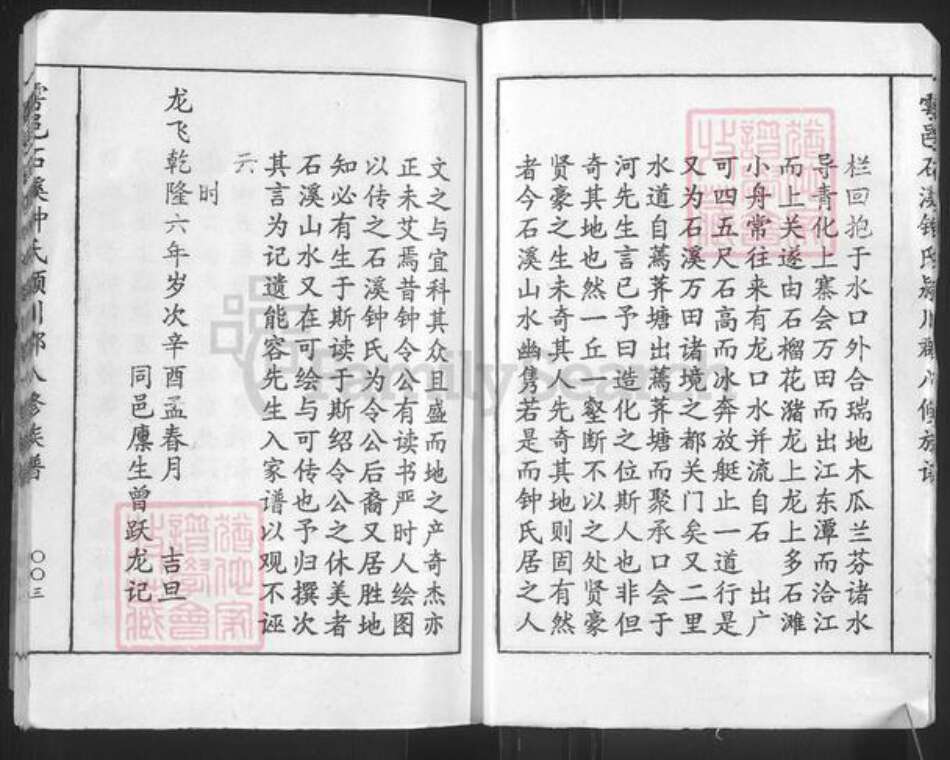 栏回抱于水口外合瑞地木瓜兰芬诸水
导青化上寨会万田而出江东潭而洽江
而上关遂由石榴花潴龙上龙上多石滩
小舟常往来有龙口水并流自石 出广
可四五尺石高而冰奔放艇止一道行是
又为石溪万田诸境之都关门矣又二里
水道自蔫荠塘出蔫荠塘而聚承口会于
河先生言已予曰造化之位斯人也非但
奇其地也然一丘一壑断不以之处贤豪
贤豪之生未奇其人先奇其地则固有然
者今石溪山水幽隽若是而钟氏居之人
文之与宜科其众且盛而地之产奇杰亦
正未艾焉昔钟令公有读书严时人绘图
以传之石溪钟氏为令公后裔又居胜地
知必有生于斯读于斯绍令公之休美者
石溪山水又在可绘与可传也予归撰次
其言为记遗能容先生入家谱以观不诬
云
时
龙飞乾隆六年岁次辛酉孟春月 吉旦
同邑廪生曾跃龙记
石溪钟氏颍川郡八修族谱
〇〇三
FamilySearch